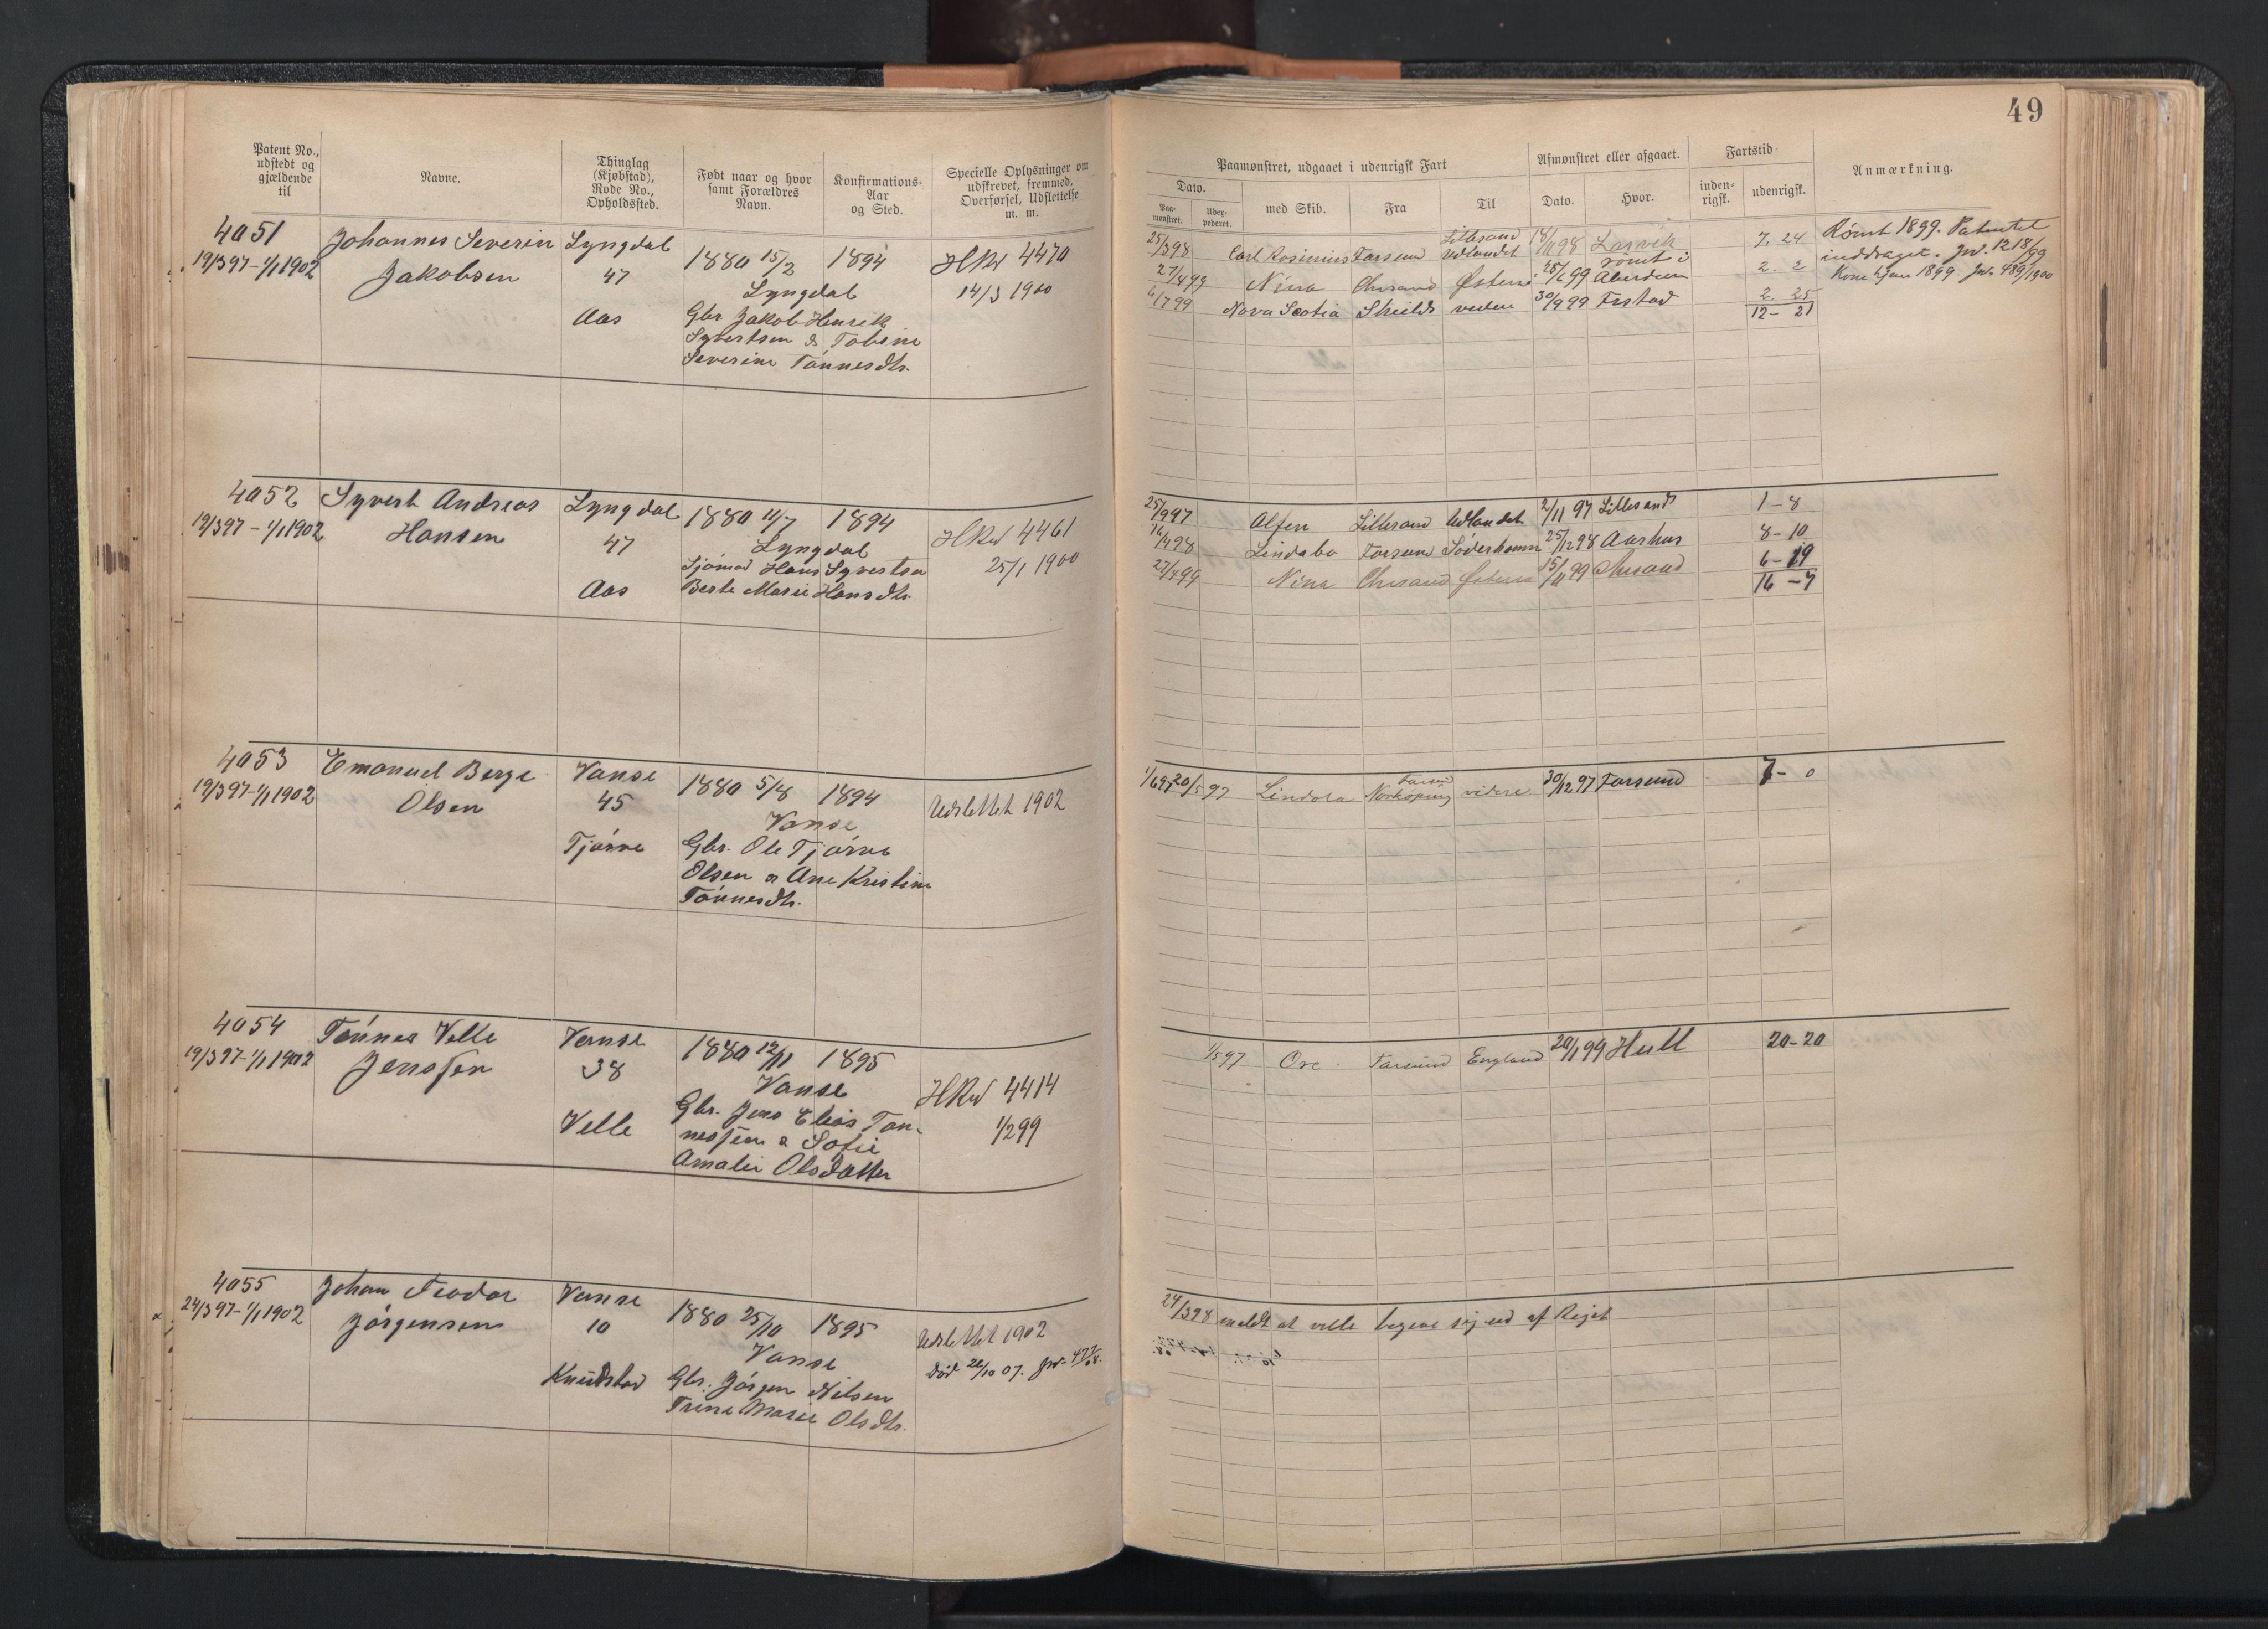 49
Patent No., udstedt og gjældende til
Navne.
Thinglag (Kjøbstad), Rode No., Opholdssted.
Født naar og hvor samt Forældres Navn.
Konfirmations-Aar og Sted.
Specielle Oplysninger om udskrevet, fremmed, Overførsel, Udslettelse m. m.
Paamønstret, udgaaet i udenrigsk Fart
Afmønstret eller afgaaet.
Fartstid
Anmærkning.
Dato.
Paa-mønstret.
Uder-pederet.
med Skib.
Fra
Til
Dato.
Hvor.
inden-rigsk.
udenrigsk.
4051
19/3 97 - 1/1 1902
Johannes Severin
Jakobsen
Lyngdal
47
Aas
1880 15/2
1894
Lyngdal
Gbr. Jakob Henrik
Syvertsen & Tobine
Severine Tönnesdtr.
HRw 4470
14/3 1900
25/3 98 Carl Rosinius Farsund Lillesand Udlandet 18/11 98 Larvik 7. 24
27/4 99 Nina Chrsand Østersø 28/6 99 römt i Aberdeen 2. 2
4/7 99 Nova Scotia Shields videre 30/9 99 Frstad 2. 25
12 - 21
Römt 1899. Patentet
inddraget. Jw. 1218/99
Kom hjem 1899. Jw. 489/1900
4052
19/3 97 - 1/1 1902
Syvert Andreas
Hansen
Lyngdal
47
Aas
1880 11/7
1894
Lyngdal
Sjömad Hans Syvertsen
Berte Marie Hansdtr.
HRw 4461
25/1 1900
25/9 97 Alfen Lillesand Udlandet 2/11 97 Lillesand 1 - 8
16/4 98 Lindabo Farsund Söderhamn 25/12 98 Aarhus 8 - 10
27/4 99 Nina Chrsand Østersø 15/11 99 Chrsand 6 - 19
16 - 7
4053
19/3 97 - 1/1 1902
Emanuel Berge
Olsen
Vanse
45
Tjörve
1880 5/8
1894
Vanse
Gbr. Ole Tjörve
Olsen & Ane Kristine
Tönnesdtr.
Udslettet 1902
1/6 97 20/5 97 Farsund Norköping videre 30/12 97 Farsund 7 - 0
4054
19/3 97 - 1/1 1902
Tönnes Velle
Jenssen
Vanse
38
Velle
1880 12/11
1895
Vanse
Gbr. Jens Elias Tön-
nessen & Sofie
Amalie Olsdatter
HRw 4414
1/2 99
1/5 97 Farsund England 20/1 99 Hull 20 - 20
4055
24/3 97 - 1/1 1902
Johan Teodor
Jörgensen
Vanse
10
Knudstad
1880 25/10
1895
Vanse
Gbr. Jörgen Nilsen
Trine Marie Olsdtr.
Udslettet 1902
död 22/10 07. Jw.
24/3 98 meldt at ville begive sig ud af Riget